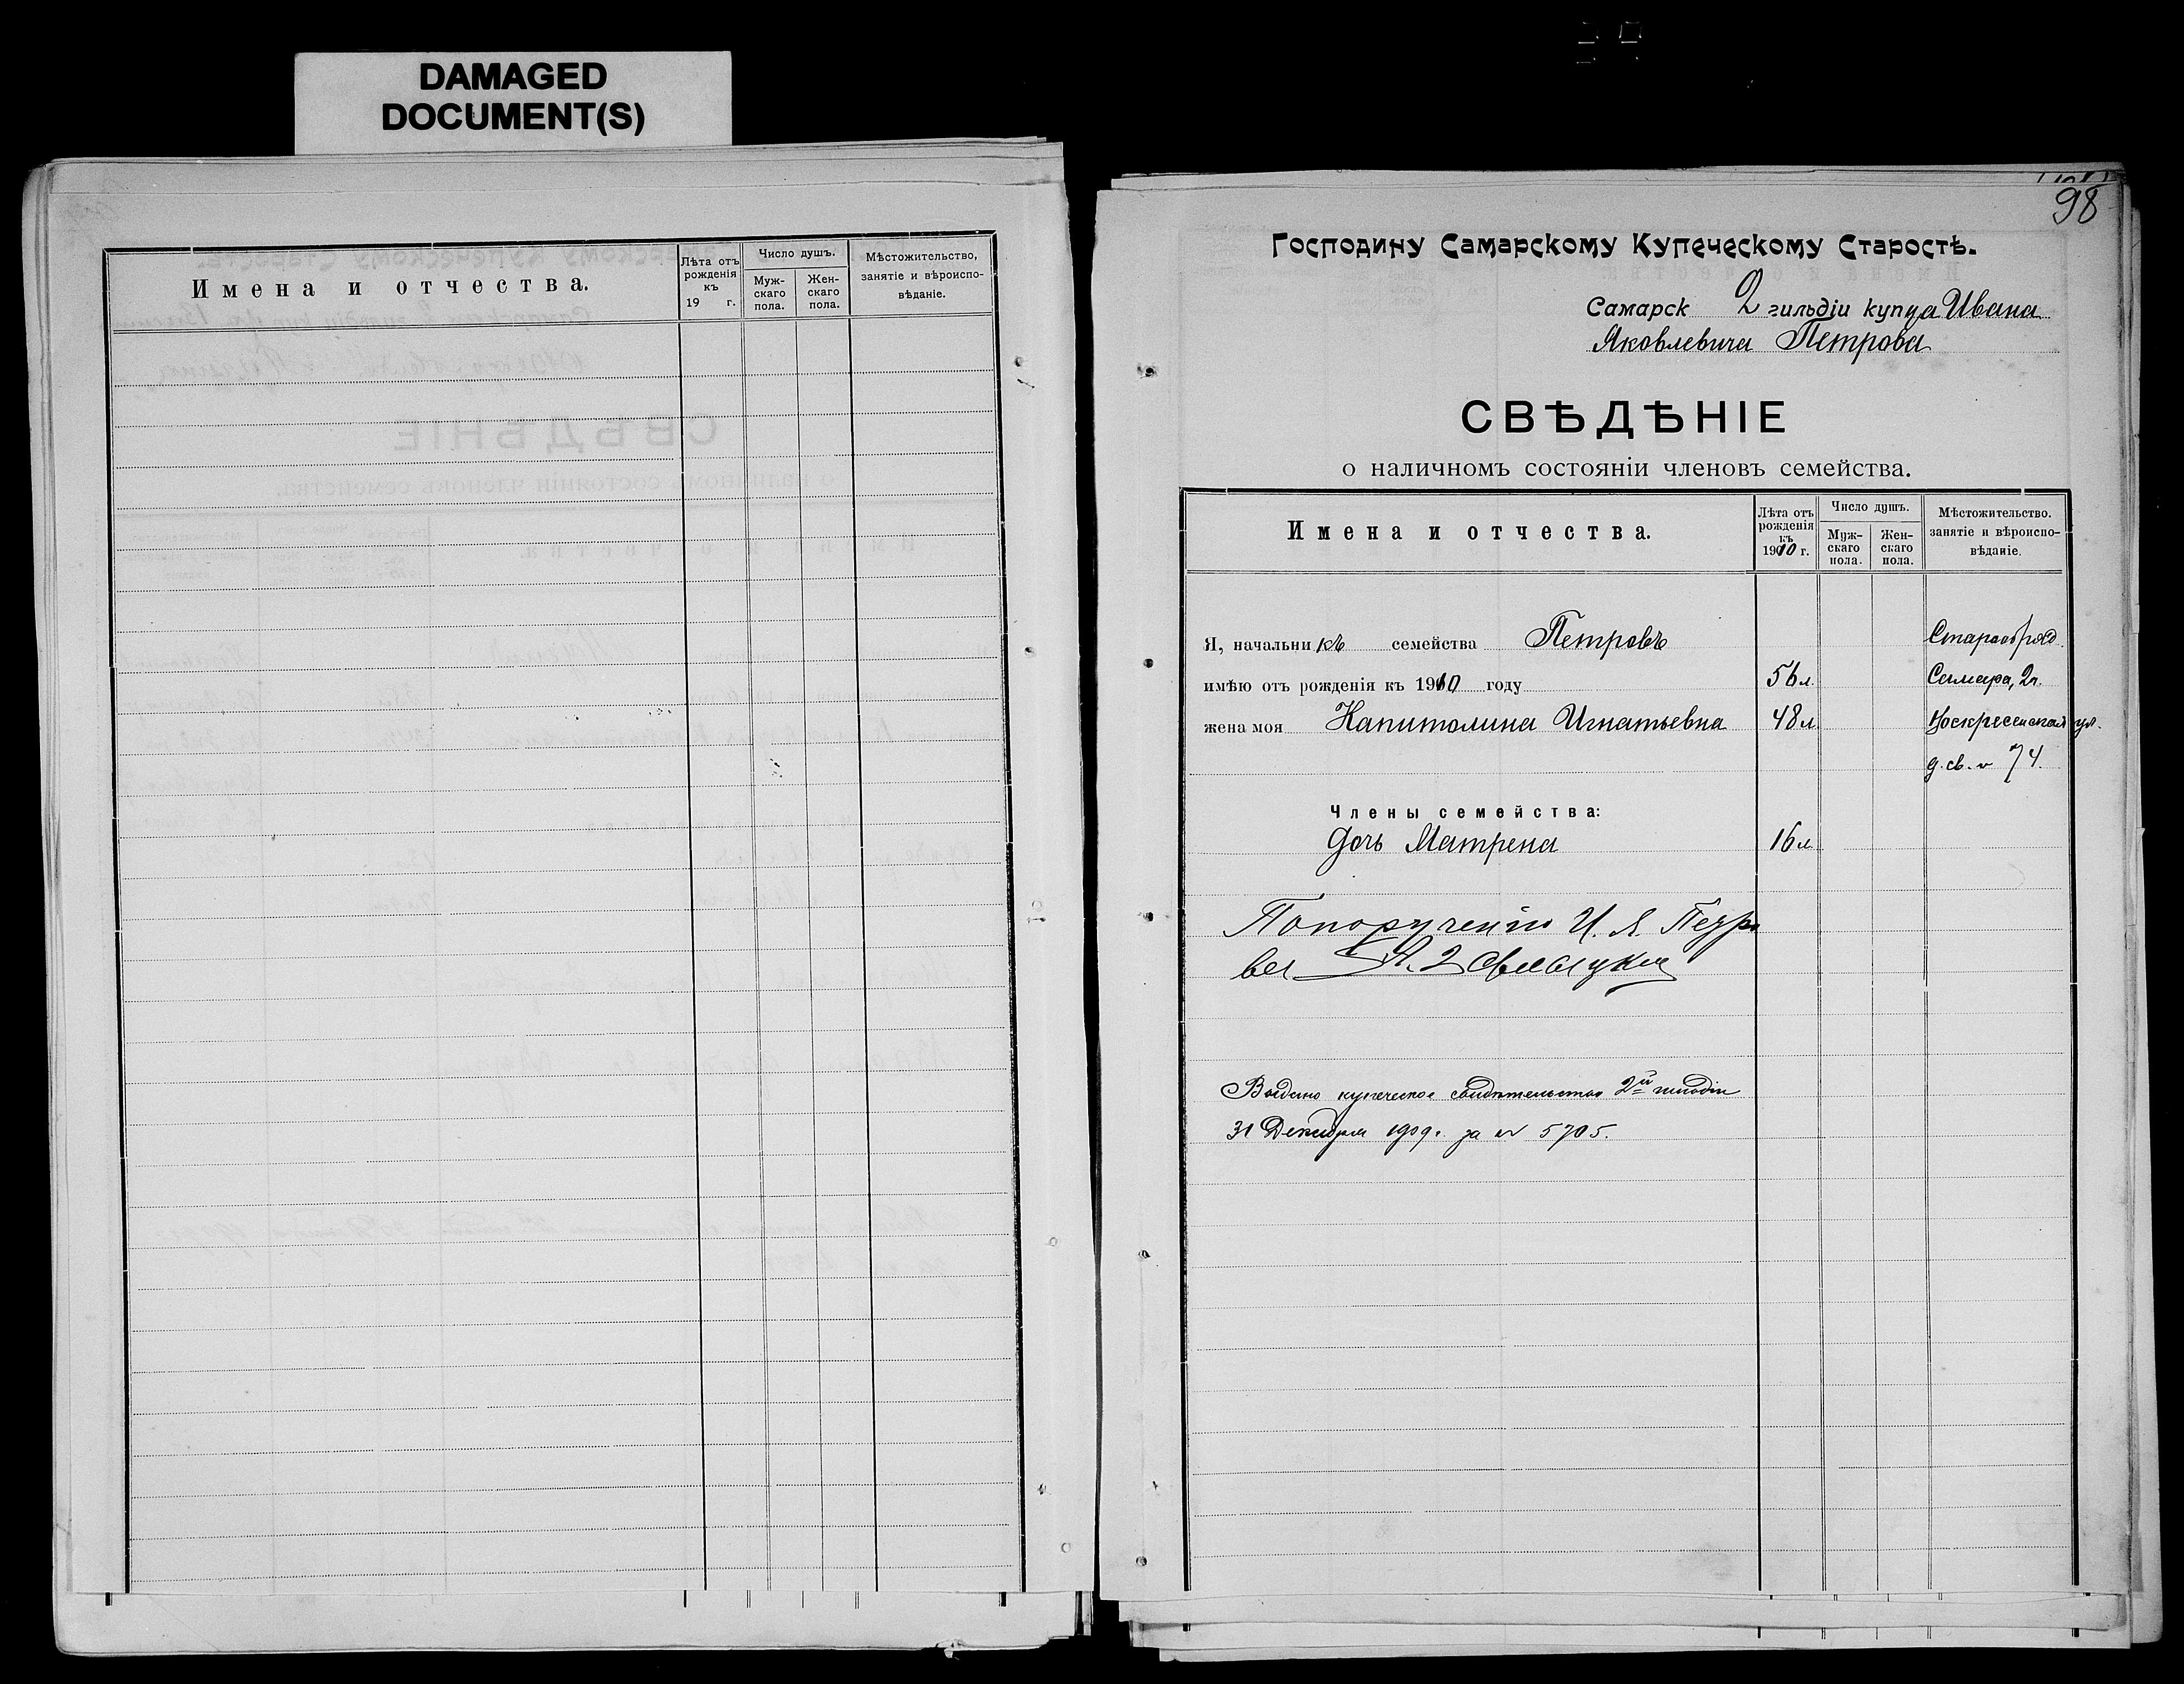 DAMAGED
DOCUMENT(S)
Имена и отчества.
Лѣта отъ рожденія къ 19 г.
Число душъ.
Муж-скаго пола.
Жен-скаго пола.
Мѣстожительство, занятіе и вѣроиспо-вѣданіе.
98
Господину Самарскому Купеческому Старостѣ.
Самарск 2 гильдіи купца Ивана
Яковлевича Петрова
СВѢДѢНІЕ
о наличномъ состояніи членовъ семейства.
Имена и отчества.
Лѣта отъ рожденія къ 1910 г.
Число душъ.
Муж-скаго пола.
Жен-скаго пола.
Мѣстожительство. занятіе и вѣроиспо-вѣданіе.
Я, начальникъ семейства Петровъ Старообряд.
имѣю отъ рожденія къ 1910 году 56 л. Самара, 2 ч.
жена моя Капитолина Игнатьевна 48 л Воскресенская ул.
д. св. № 74.
Члены семейства:
дочь Матрена 16 л
По порученію И. Я. Петро
ва
Выдано купеческое свидѣтельство 2й гильдіи
31 Декабря 1909 г. за № 5705.